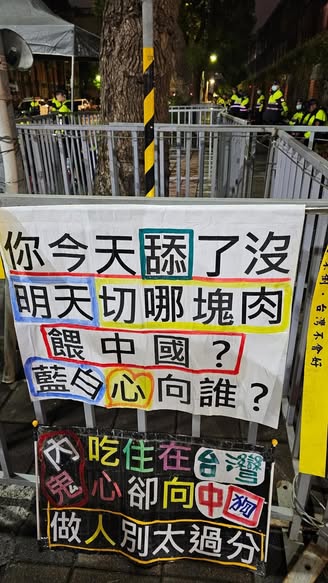 你今天舔了沒
明天切哪塊肉
餵中國？
藍白心向誰？
內鬼
吃住在台灣
心卻向中狗
做人別太過分
台灣不會好